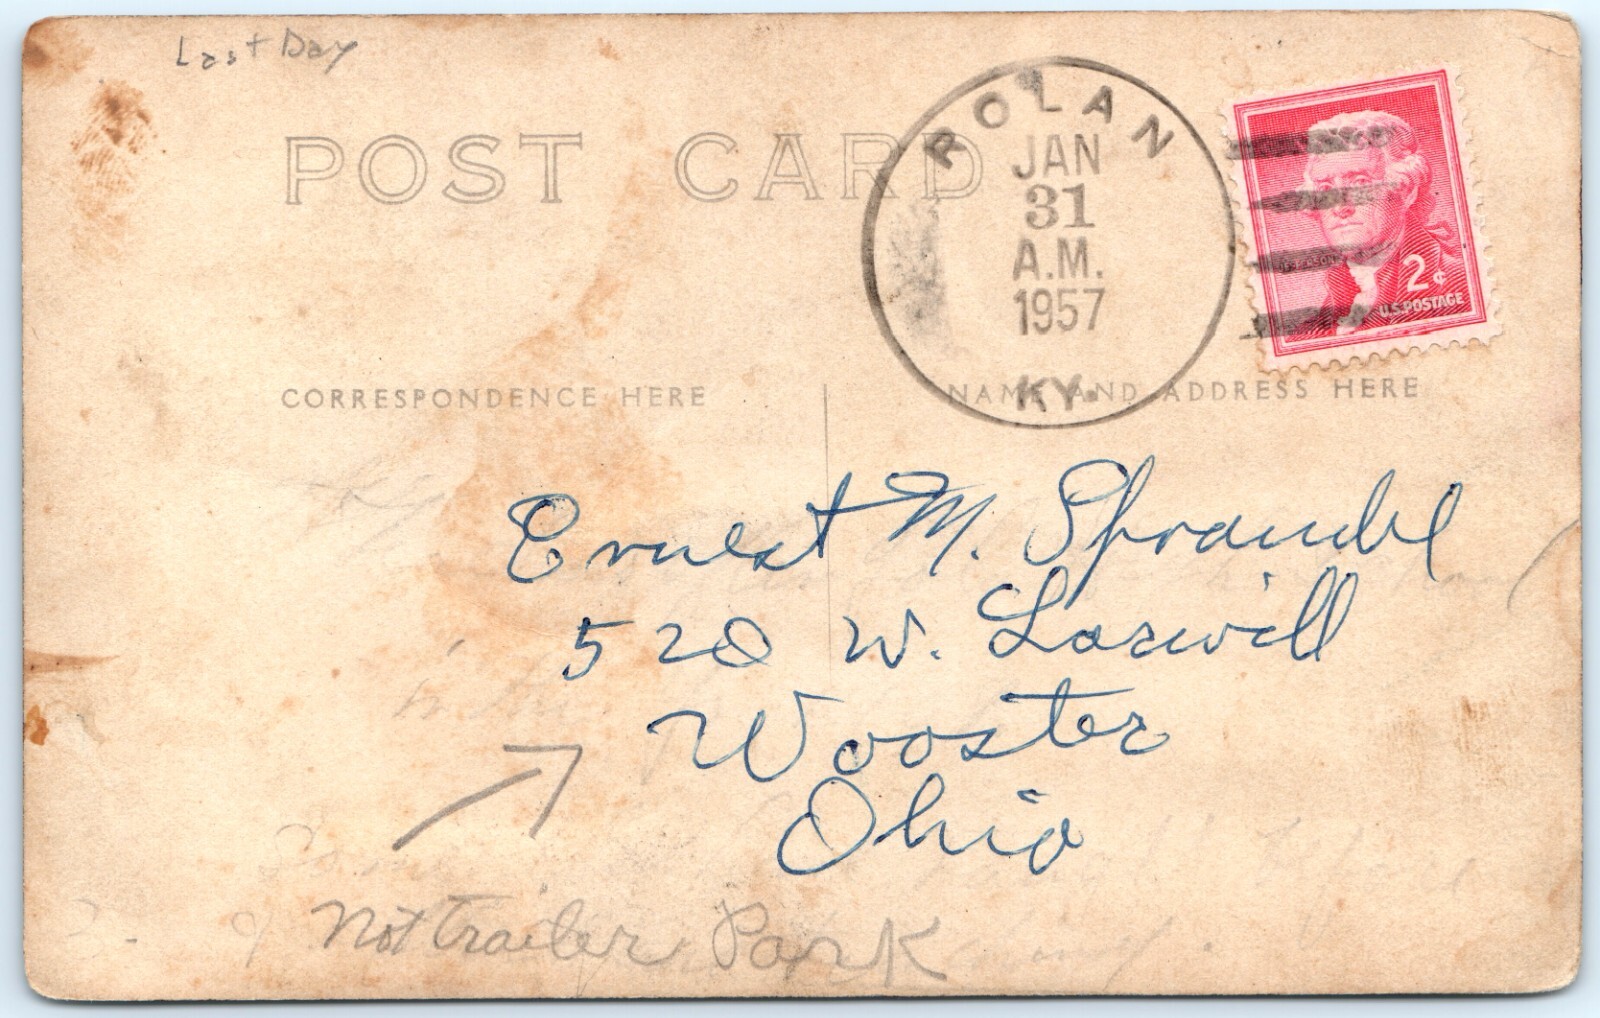 Last Day
POST CARD
ROLAN
JAN
31
A.M.
1957
KY.
2¢
U.S. POSTAGE
CORRESPONDENCE HERE
NAME AND ADDRESS HERE
Ernest M. Sprandel
520 W.
Wooster
Ohio
Not Trailer Park